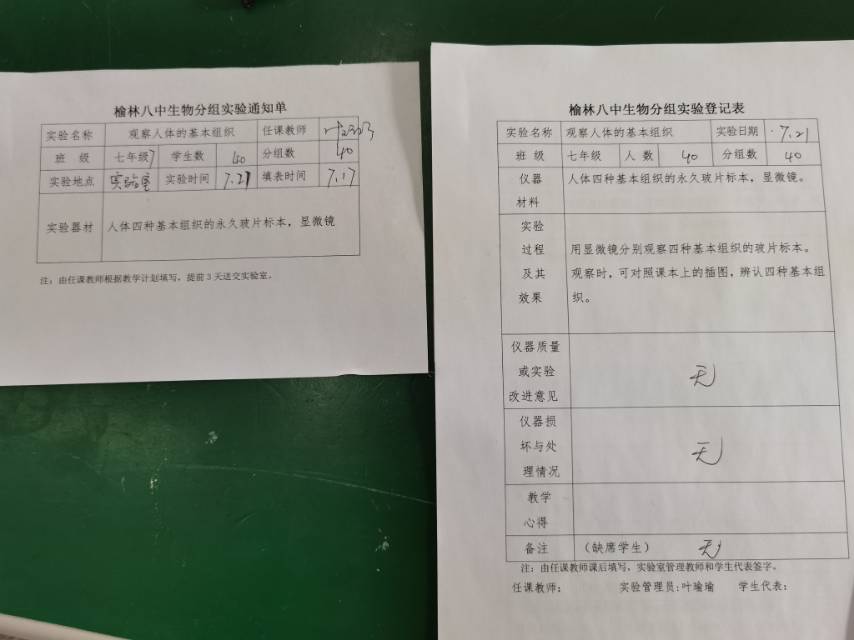 榆林八中生物分组实验通知单
实验名称 观察人体的基本组织 任课教师
班 级 七年级7 学生数 40 分组数 40
实验地点 实验室 实验时间 7.21 填表时间 7.17
实验器材 人体四种基本组织的永久玻片标本，显微镜
注：由任课教师根据教学计划填写，提前3天送交实验室。
榆林八中生物分组实验登记表
实验名称 观察人体的基本组织 实验日期 7.21
班 级 七年级 人 数 40 分组数 40
仪器 人体四种基本组织的永久玻片标本，显微镜。
材料
实验
过程 用显微镜分别观察四种基本组织的玻片标本。
及其 观察时，可对照课本上的插图，辨认四种基本组
效果 织。
仪器质量
或实验 无
改进意见
仪器损
坏与处 无
理情况
教学
心得
备注 （缺席学生） 无
注：由任课教师课后填写，实验室管理教师和学生代表签字。
任课教师： 实验管理员:叶瑜瑜 学生代表：